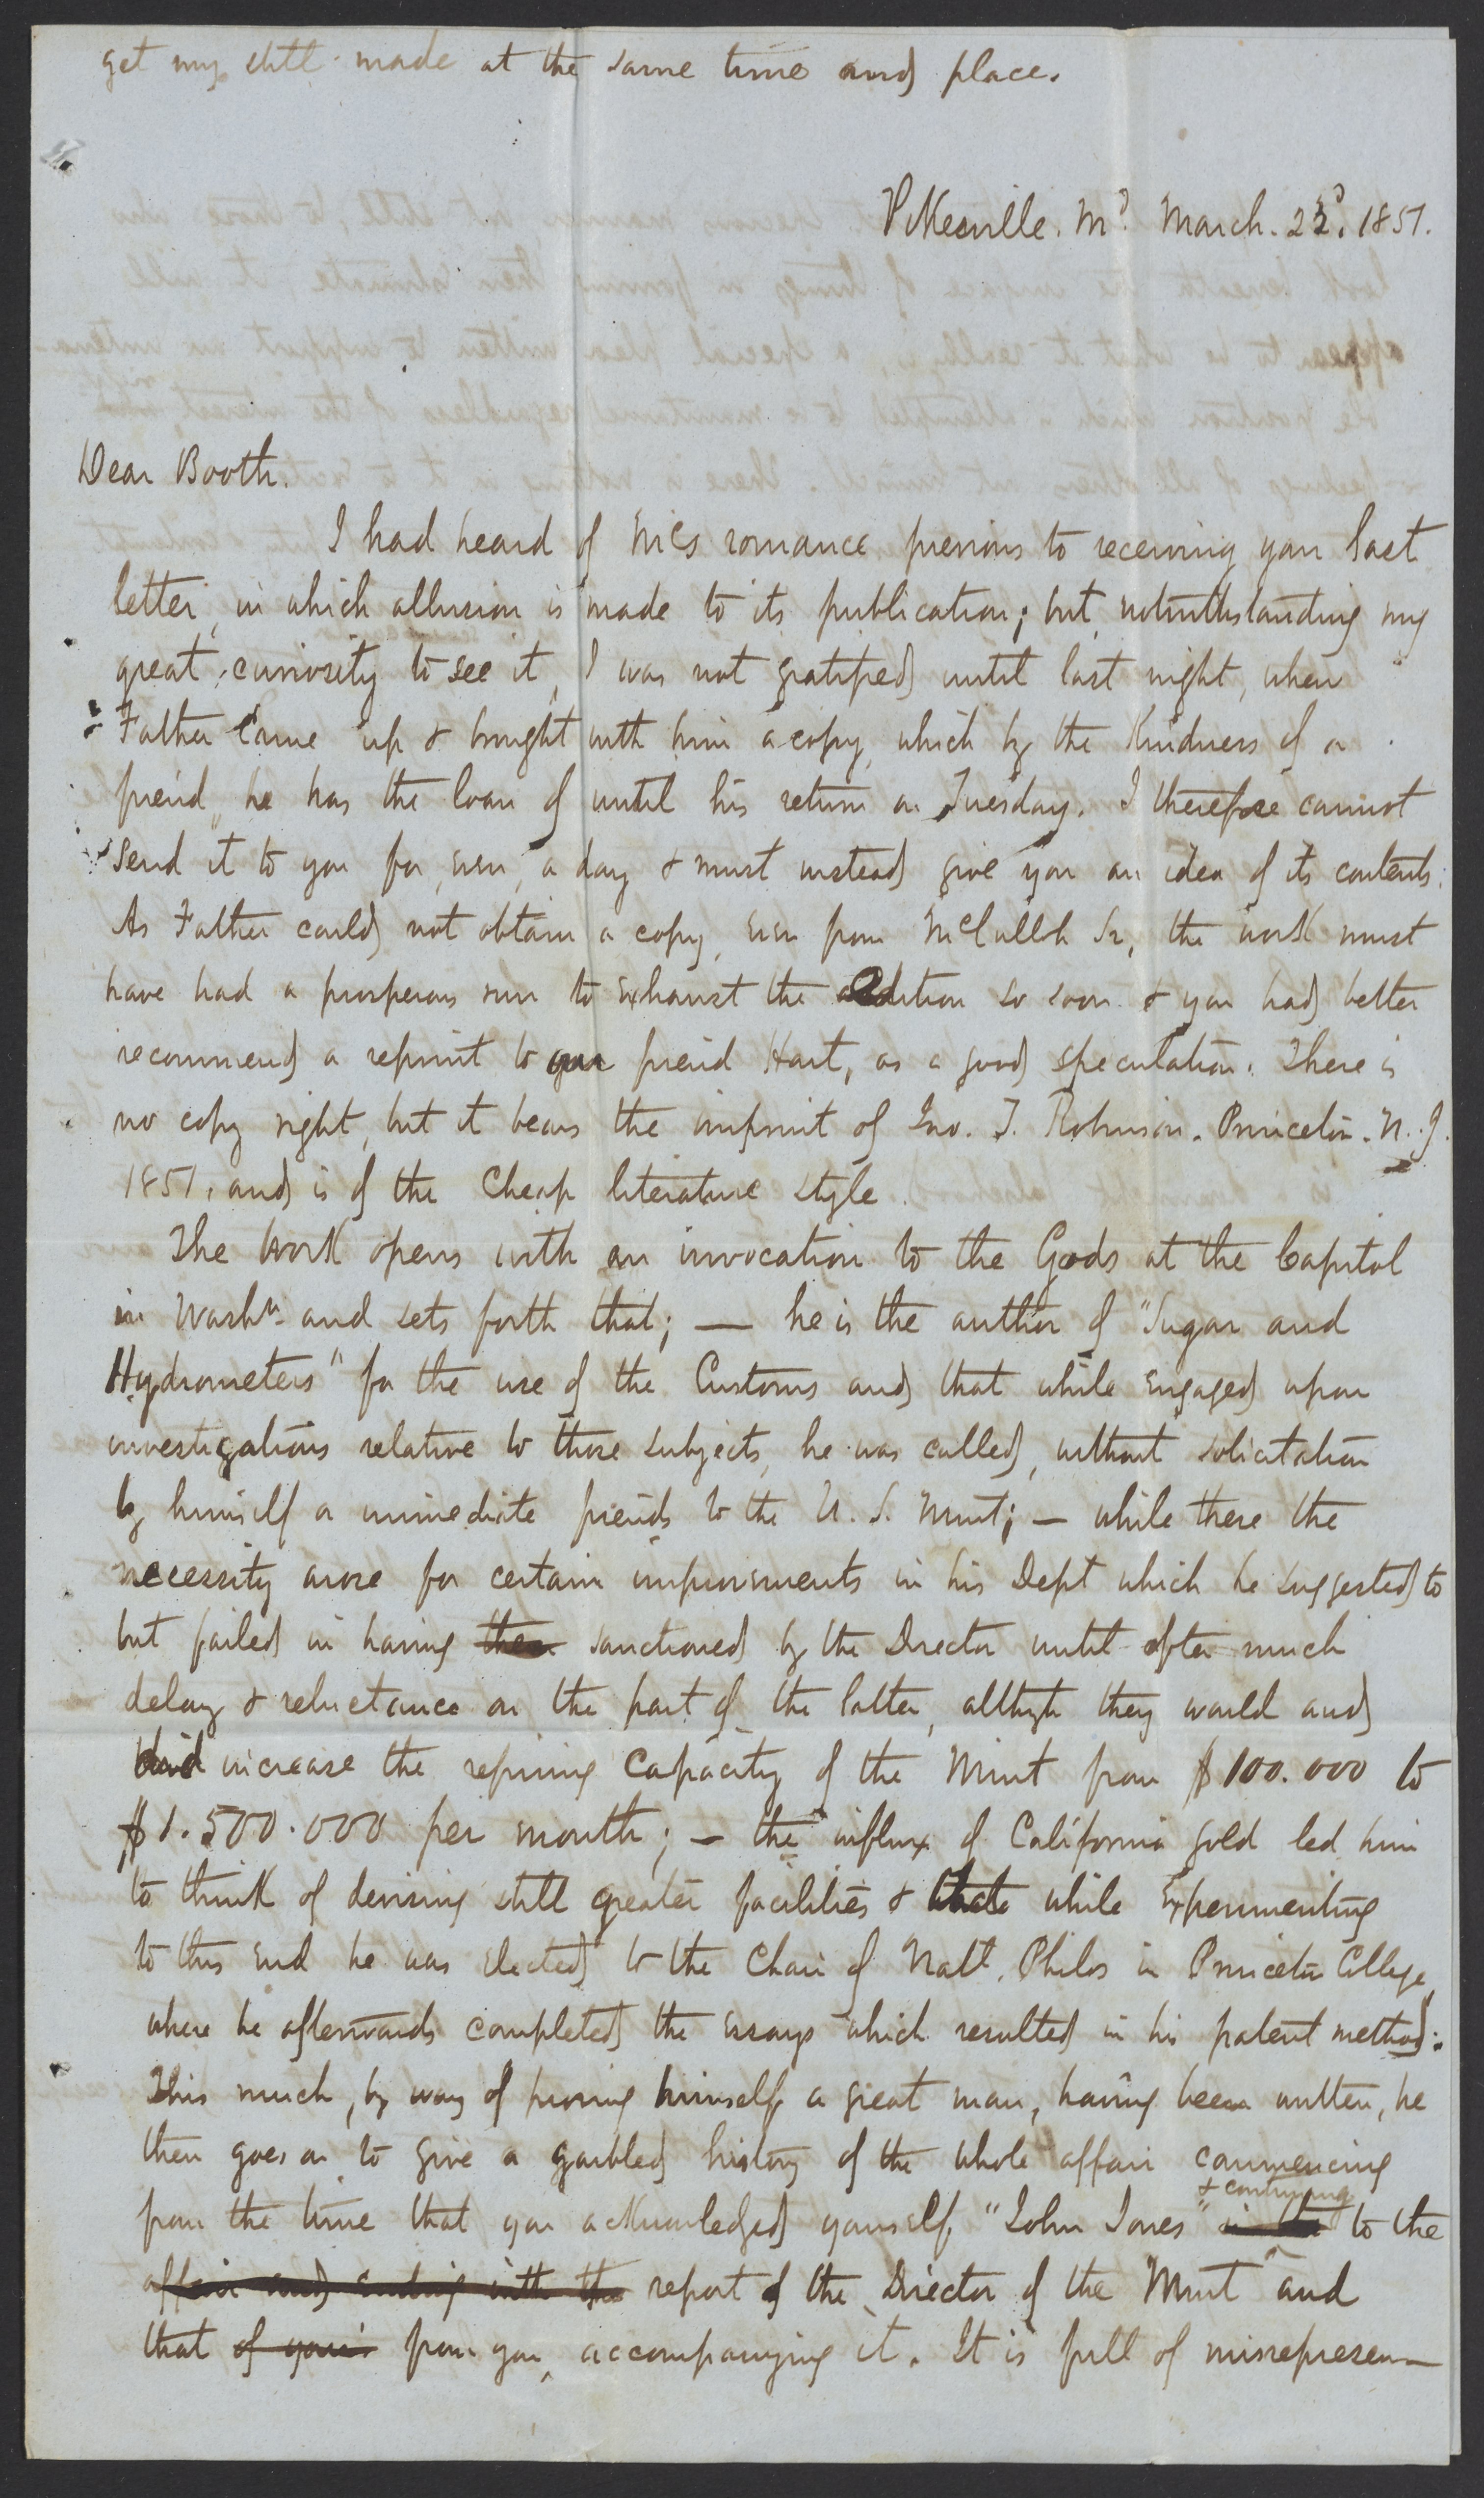 get my still made at the same time and place.
Pikesville. Md. March. 22d. 1851.
Dear Booth.
I had heard of McCs romance previous to receiving your last
letter, in which allusion is made to its publication; but notwithstanding my
great curiosity to see it, I was not gratified until last night, when
Father came up & brought with him a copy, which by the kindness of a
freind, he has the loan of until his return on Tuesday. I therefore cannot
send it to you for, even, a day & must instead give you an idea of its contents.
As Father could not obtain a copy, even from McCulloh Sr, the work must
have had a prosperous run to exhaust the edition so soon & you had better
recommend a reprint to our freind Hart, as a good speculation. There is
no copy right, but it bears the imprint of Jno. T. Robinson. Princeton. N.J.
1851. and is of the Cheap literature style.
The work opens with an invocation to the Gods at the Capitol
in Washn and sets forth that; — he is the author of "Sugar and
Hydrometers" for the use of the Customs and that while engaged upon
investigations relative to those subjects, he was called, without solicitation
by himself or immediate freinds to the U. S. Mint; — while there the
necessity arose for certain improvements in his Dept which he suggested to
but failed in having them sanctioned by the Director until after much
delay & reluctance on the part of the latter, althgh they would and
did increase the refining capacity of the Mint from $100.000 to
$1.500.000 per month; — the influx of California gold led him
to think of devising still greater facilities & that while experimenting
to this end he was elected to the Chair of Natl. Philos in Princeton College,
where he afterwards completed the essays which resulted in his patent method.
This much, by way of proving himself a great man, having been written, he
then goes on to give a garbled history of the whole affair commencing
& continuing
from the time that you acknowledged yourself "John Jones" in the to the
affair and ending with the report of the Director of the Mint and
that of your from you, accompanying it. It is full of misrepresen—